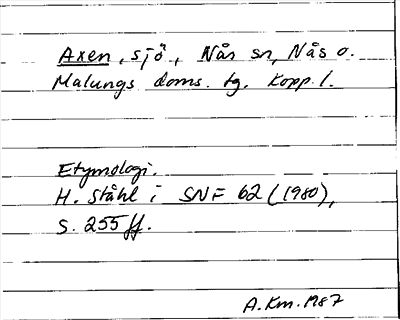 Axen, sjö, Nås sn, Nås o.
Malungs doms. tg. Kopp. l.
Etymologi.
H. Ståhl i SNF 62 (1980),
s. 255 ff.
A.Km.1987